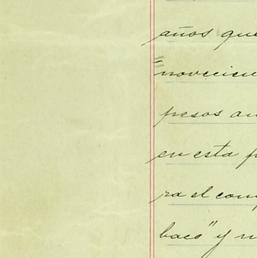 años que
"novecien
pesos an
en esta p
ra el com
baco" y n